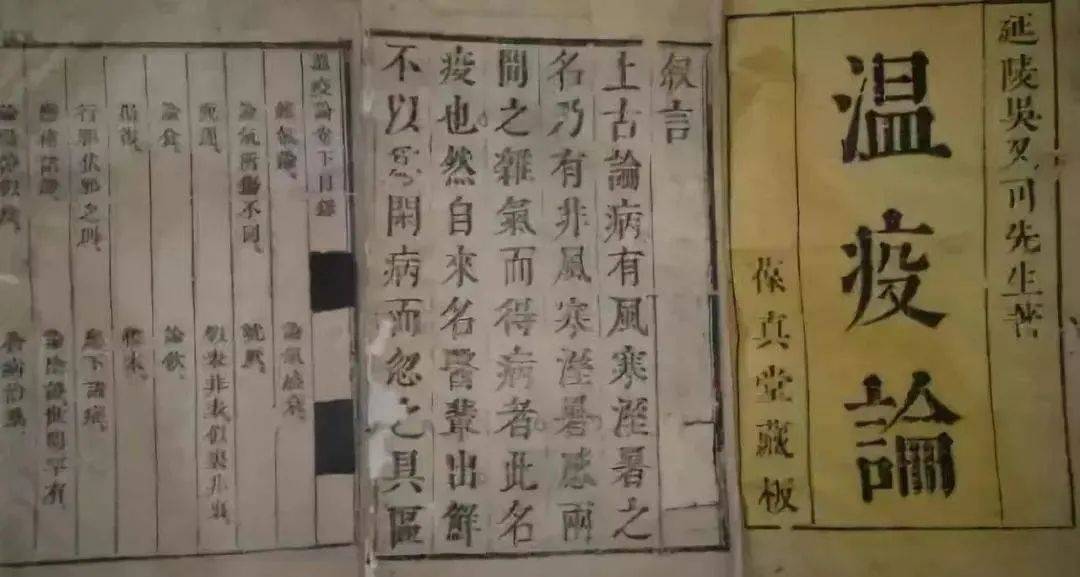 延陵吳又可先生著
温疫論
葆真堂藏板
叙言
上古論病有風寒溼暑之
名乃有非風寒溼暑感兩
間之雜氣而得病者此名
疫也然自來名醫輩出鮮
不以閑病而忽之具區
温疫論卷下目錄
雜氣論 論氣盛衰
論氣所傷不同 蚘厥
呃逆 似表非表似裏非裏
論食 論飲
損復 標本
行邪伏邪之別 應下諸症
應補諸證 論陰證世間罕有
論陽證似陰 舍病治藥